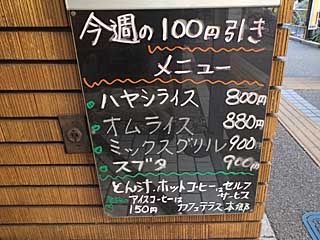 今週の100円引き
メニュー
ハヤシライス 800円
オムライス 880円
ミックスグリル 900円
スブタ 900円
とん汁、ホットコーヒーはセルフサービス
アイスコーヒーは150円
カフェテラス 本郷